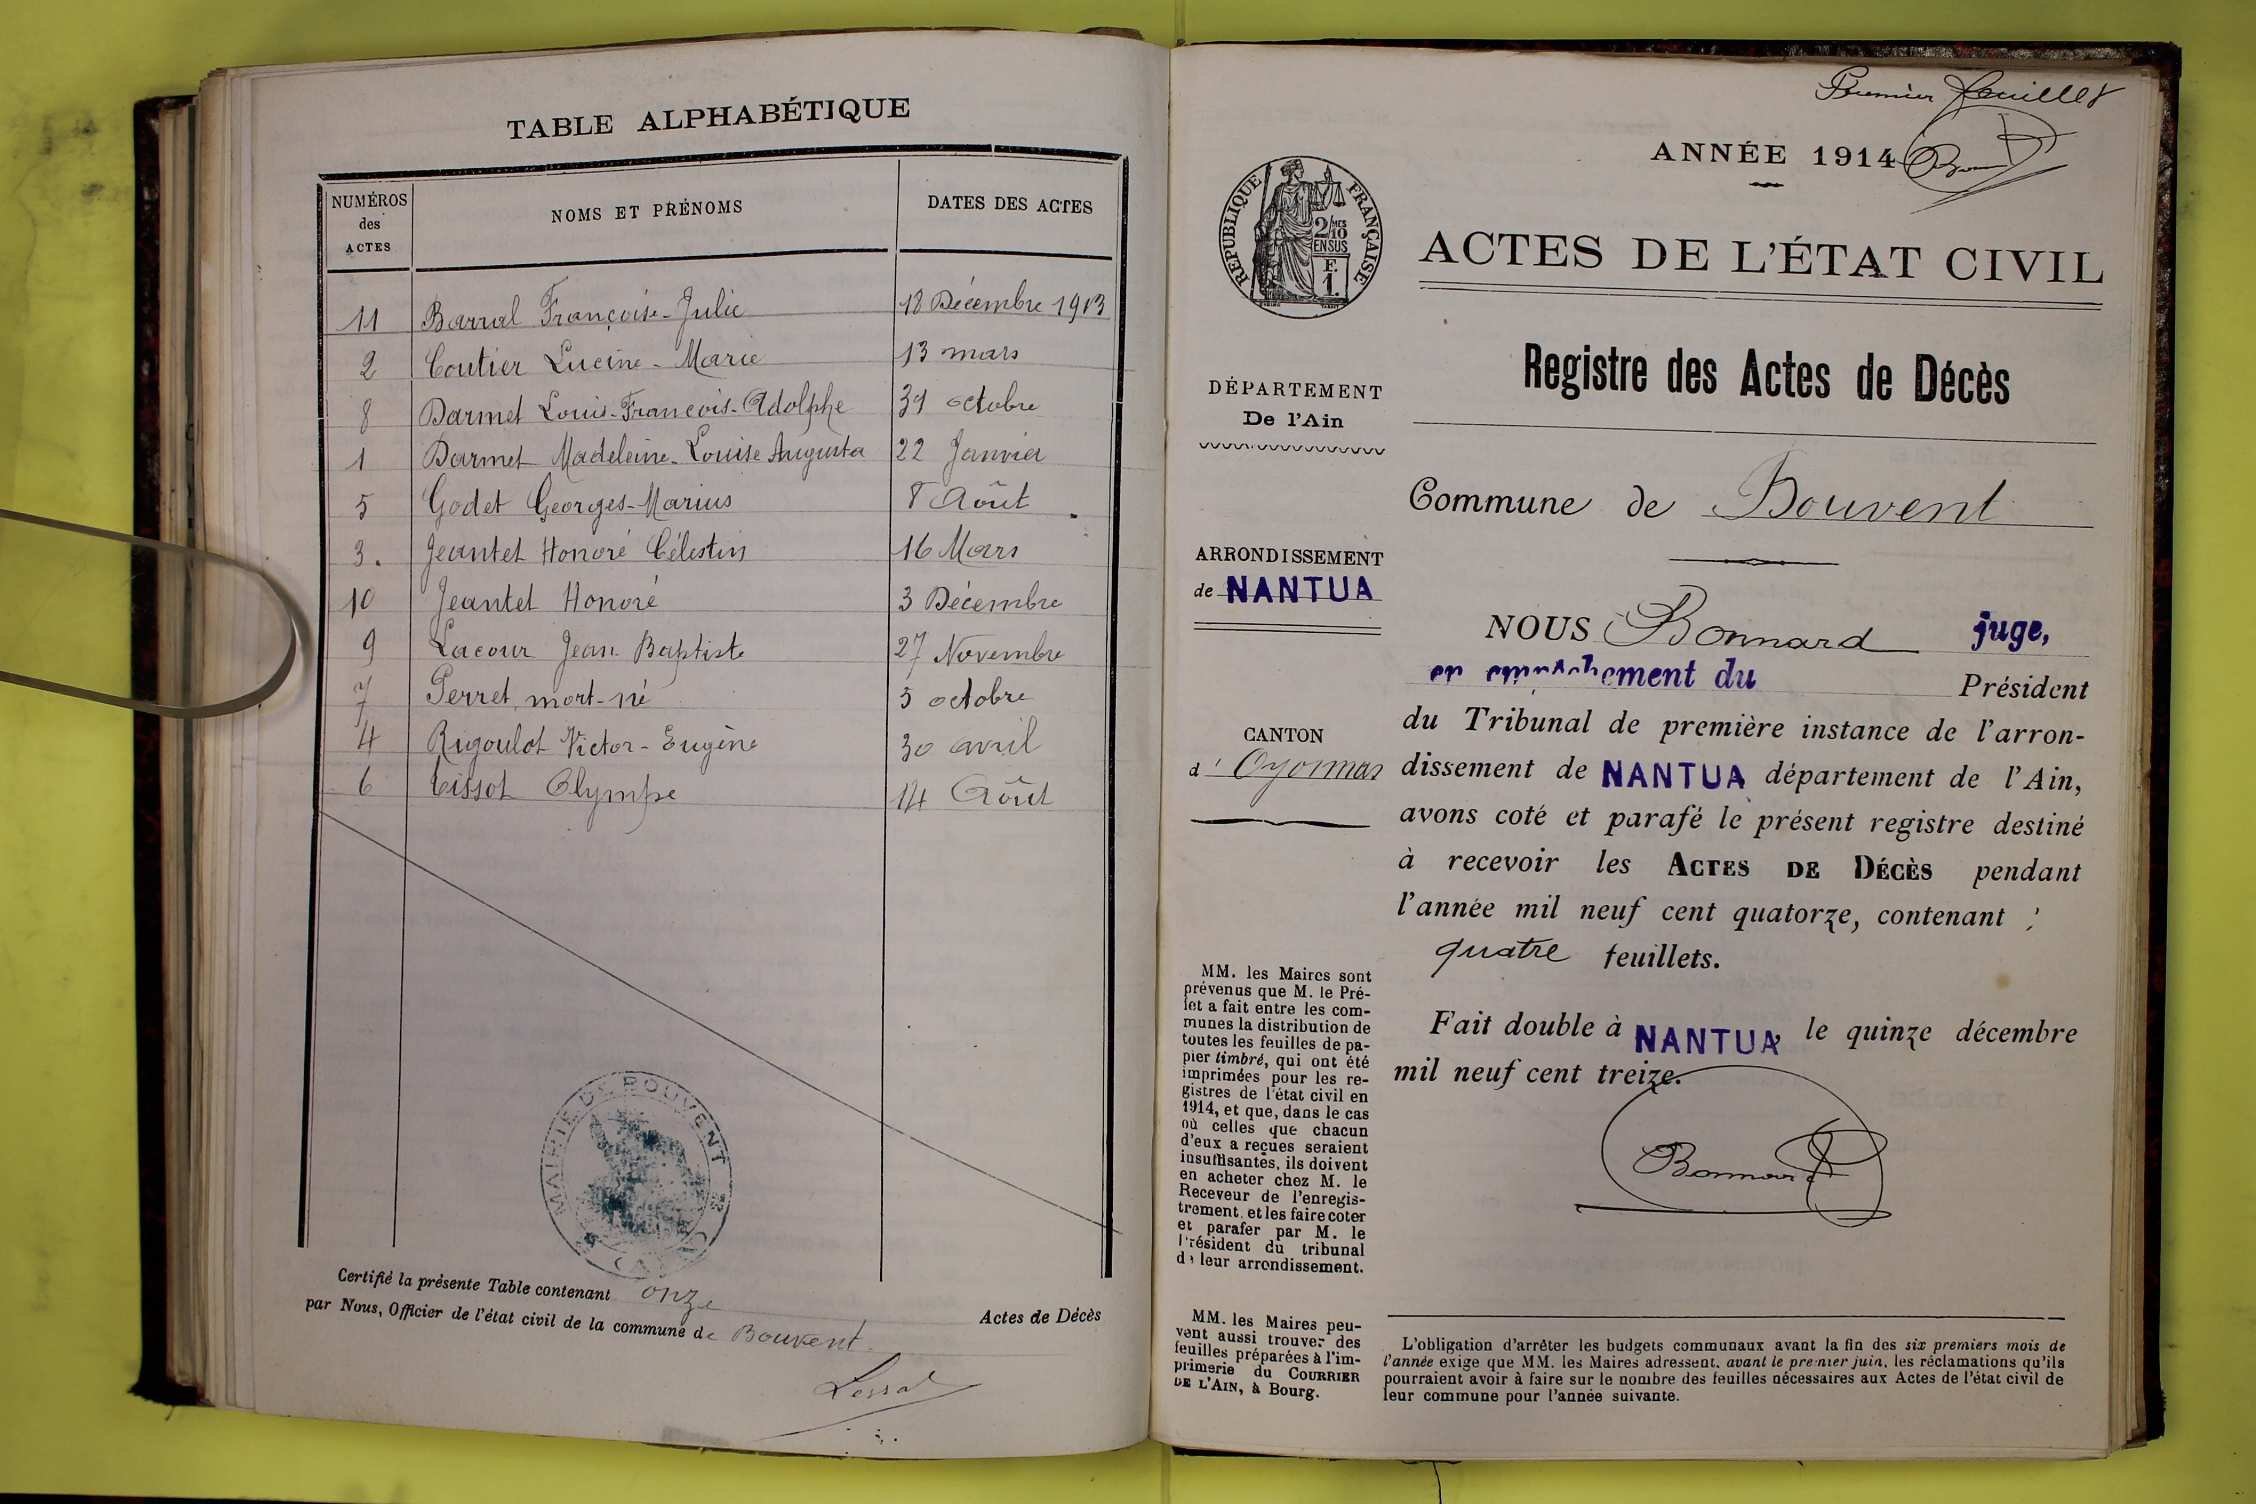 TABLE ALPHABÉTIQUE
NUMÉROS des ACTES
NOMS ET PRÉNOMS
DATES DES ACTES
11 Barral Françoise-Julie 18 Décembre 1913
2 Coutier Lucine-Marie 13 mars
8 Darmet Louis-François-Adolphe 31 octobre
1 Darmet Madeleine-Louise Augusta 22 Janvier
5 Godet Georges-Marius 8 Août
3. Jeantet Honoré Célestin 16 Mars
10 Jeantet Honoré 3 Décembre
9 Lacour Jean Baptiste 27 Novembre
7 Perret, mort-né 5 octobre
4 Rigoulot Victor-Eugène 30 avril
6 Tissot Olympe 14 Août
MAIRIE DE BOUVENT
(AIN)
Certifié la présente Table contenant onze Actes de Décès
par Nous, Officier de l'état civil de la commune de Bouvent
Premier feuillet
ANNÉE 1914
RÉPUBLIQUE FRANÇAISE
2/10 MES
EN SUS
F.
1.
ACTES DE L'ÉTAT CIVIL
Registre des Actes de Décès
DÉPARTEMENT
De l'Ain
Commune de Bouvent
ARRONDISSEMENT
de NANTUA
CANTON
d' Oyonnax
NOUS Bonnard juge,
en empêchement du Président
du Tribunal de première instance de l'arron-
dissement de NANTUA département de l'Ain,
avons coté et parafé le présent registre destiné
à recevoir les ACTES DE DÉCÈS pendant
l'année mil neuf cent quatorze, contenant
quatre feuillets.
Fait double à NANTUA, le quinze décembre
mil neuf cent treize.
Bonnard
MM. les Maires sont
prévenus que M. le Pré-
fet a fait entre les com-
munes la distribution de
toutes les feuilles de pa-
pier timbré, qui ont été
imprimées pour les re-
gistres de l'état civil en
1914, et que, dans le cas
où celles que chacun
d'eux a reçues seraient
insuffisantes, ils doivent
en acheter chez M. le
Receveur de l'enregis-
trement, et les faire coter
et parafer par M. le
Président du tribunal
de leur arrondissement.
MM. les Maires peu-
vent aussi trouver des
feuilles préparées à l'im-
primerie du COURRIER
DE L'AIN, à Bourg.
L'obligation d'arrêter les budgets communaux avant la fin des six premiers mois de
l'année exige que MM. les Maires adressent, avant le premier juin, les réclamations qu'ils
pourraient avoir à faire sur le nombre des feuilles nécessaires aux Actes de l'état civil de
leur commune pour l'année suivante.